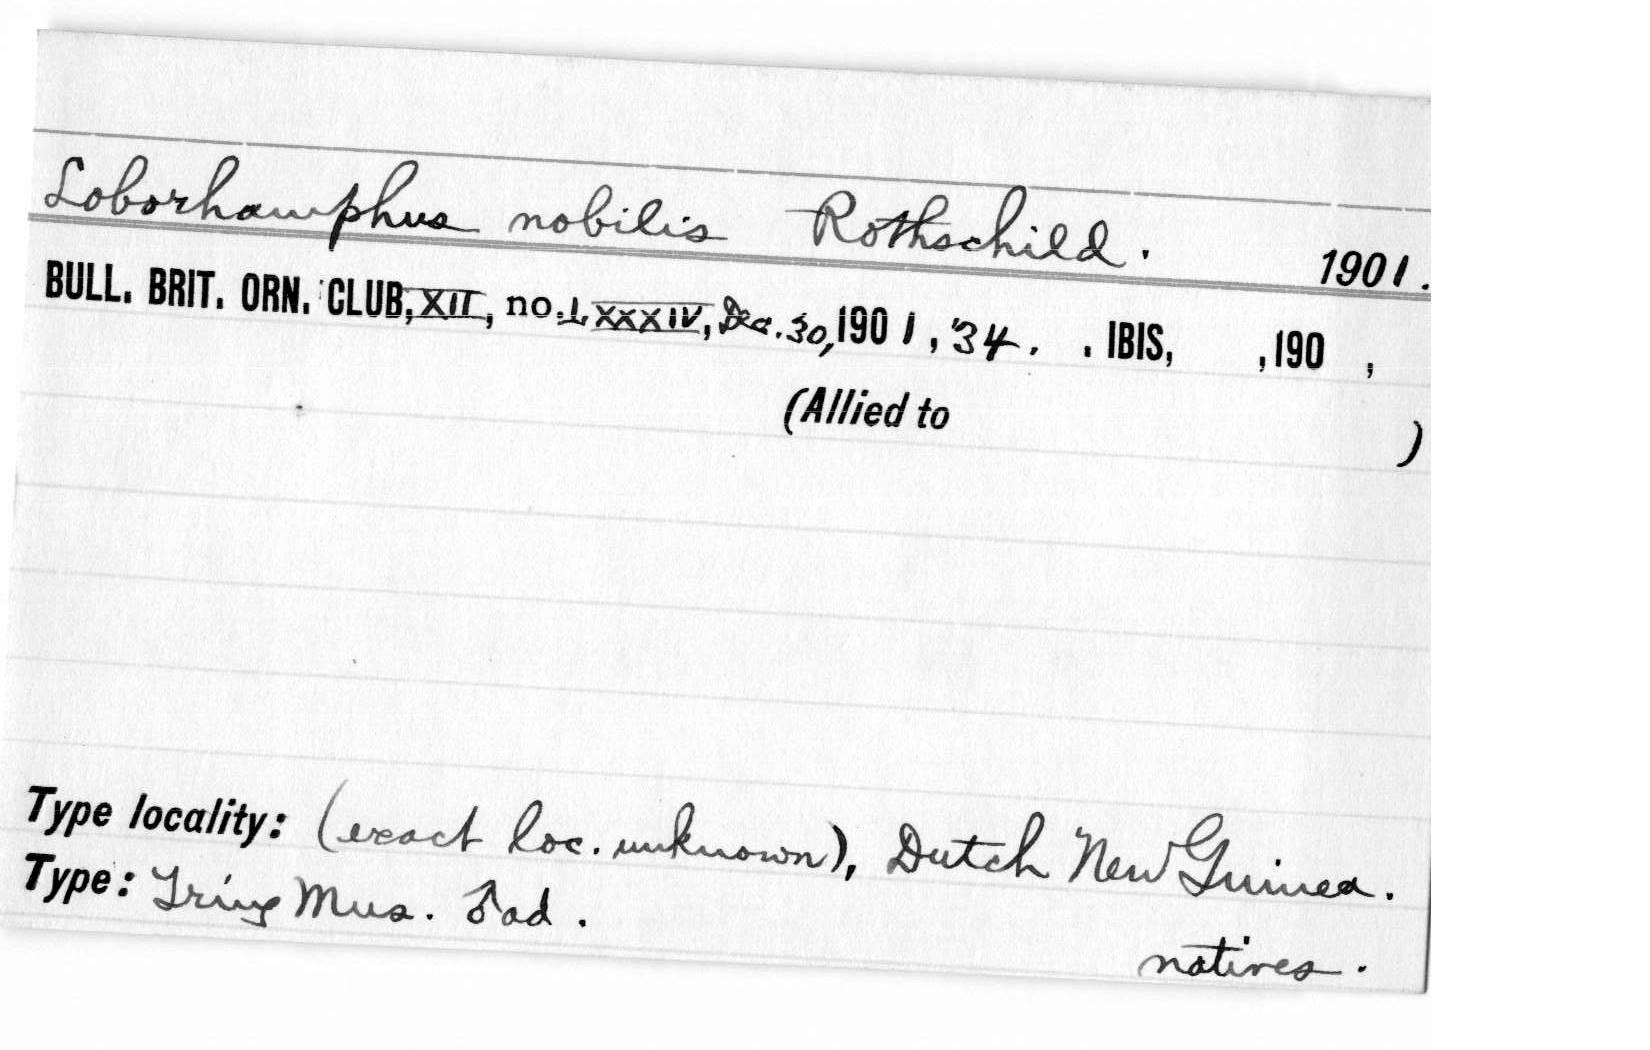 Loborhamphus nobilis Rothschild. 1901.
BULL. BRIT. ORN. CLUB, XII, no. LXXXIV, Dec. 30, 1901, 34. . IBIS, ,190 ,
(Allied to )
Type locality: (exact loc. unknown), Dutch New Guinea.
Type: Tring Mus. ♂ad.
natives.